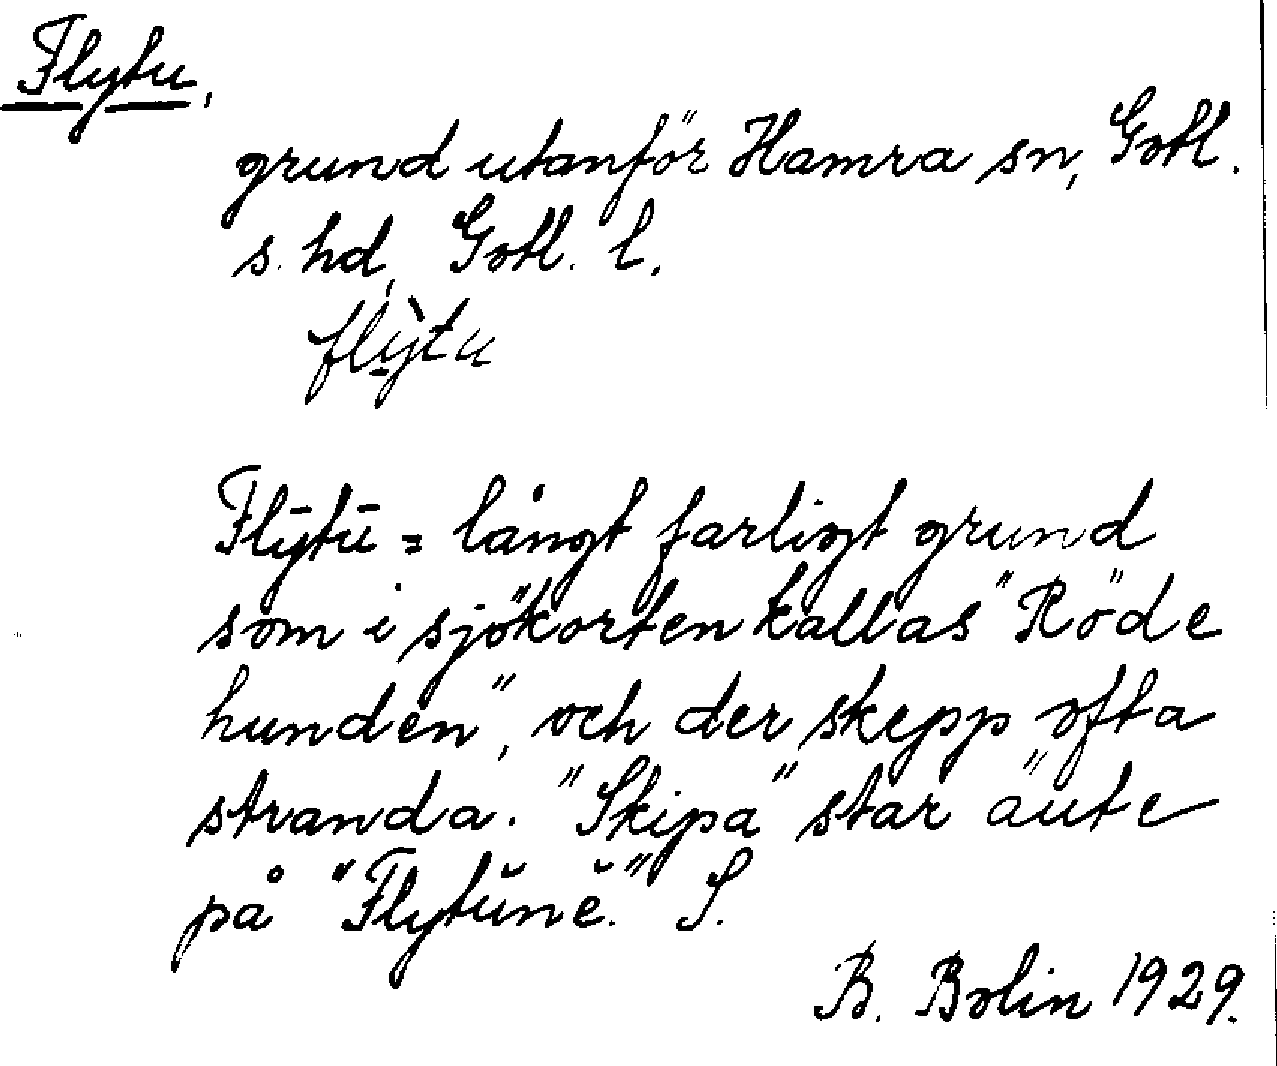 Flytu,
grund utanför Hamra sn, Gotl.
s. hd, Gotl. l.
flỳtu
Flȳtū = långt farligt grund
som i sjökorten kallas "Röde
hunden", och der skepp ofta
stranda. "Skipa" star äute
på "Flytŭnĕ." S.
B. Bolin 1929.